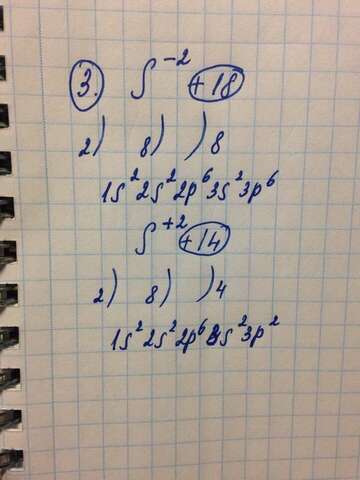 3. S⁻² +18
2) 8) )8
1s²2s²2p⁶3s²3p⁶
S⁺² +14
2) 8) )4
1s²2s²2p⁶3s²3p²